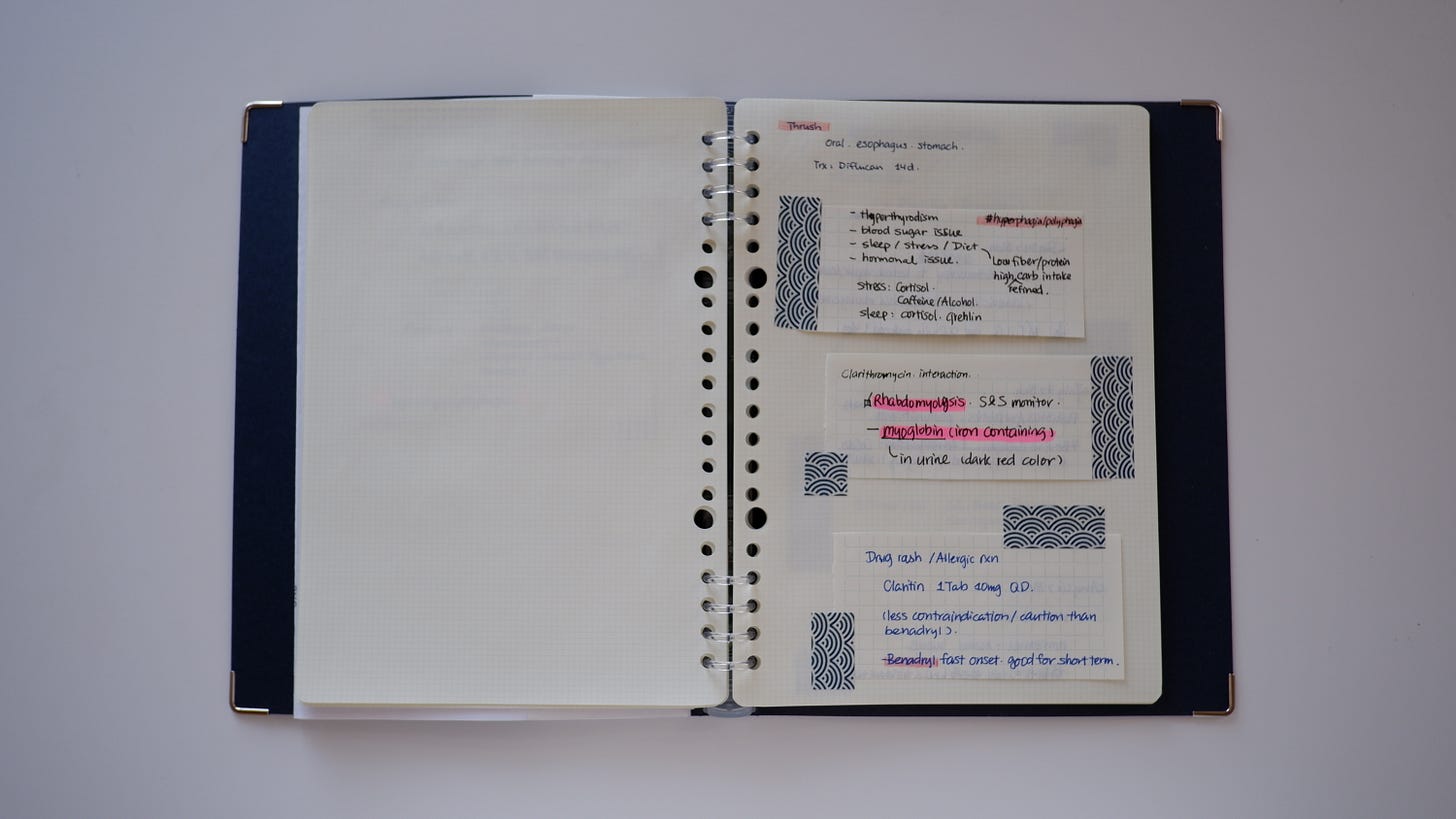 Thrush
Oral . esophagus . stomach .
Trx : Diflucan 14d .
- Hyperthyrodism
#hyperphagia/polyphagia
- blood sugar issue
- sleep / stress / Diet
- hormonal issue .
Low fiber/protein
high carb intake
refined .
stress : Cortisol .
Caffeine/Alcohol.
sleep : cortisol . Grehlin
Clarithromycin . interaction .
Rhabdomyolysis . S&S monitor .
- myoglobin (iron containing)
in urine (dark red color)
Drug rash / Allergic rxn
Claritin 1Tab 10mg QD.
(less contraindication / caution than
benadryl ) .
- Benadryl fast onset . good for short term .